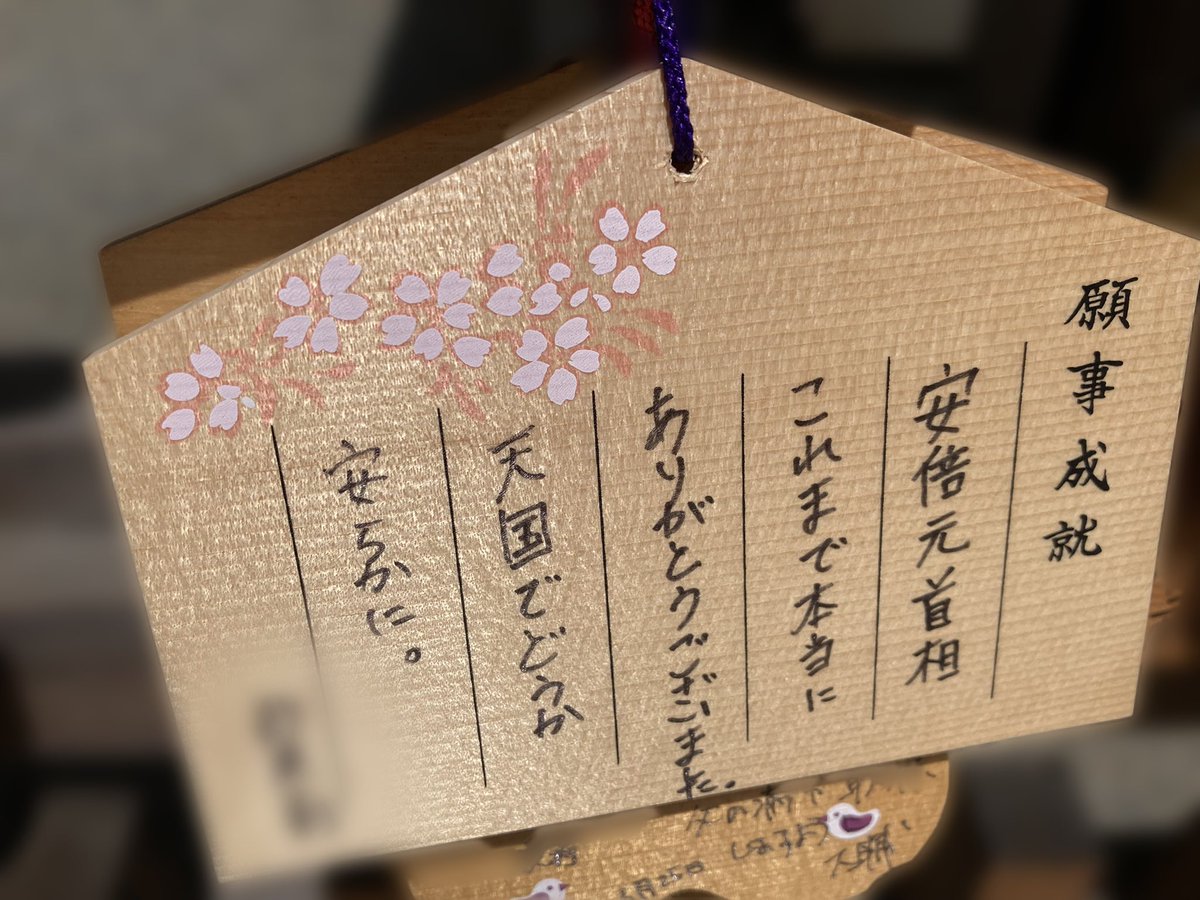 願事成就
安倍元首相
これまで本当に
ありがとうございました。
天国でどうか
安らかに。
しますよう
月25日